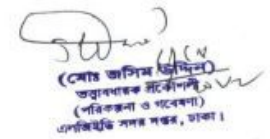 (মোঃ জসিম উদ্দিন)
তত্ত্বাবধায়ক প্রকৌশলী
(পরিকল্পনা ও গবেষণা)
এলজিইডি সদর দপ্তর, ঢাকা।